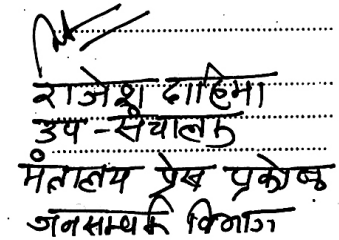 राजेश दाहिमा
उप - संचालक
मंत्रालय प्रेस प्रकोष्ठ
जनसम्पर्क विभाग